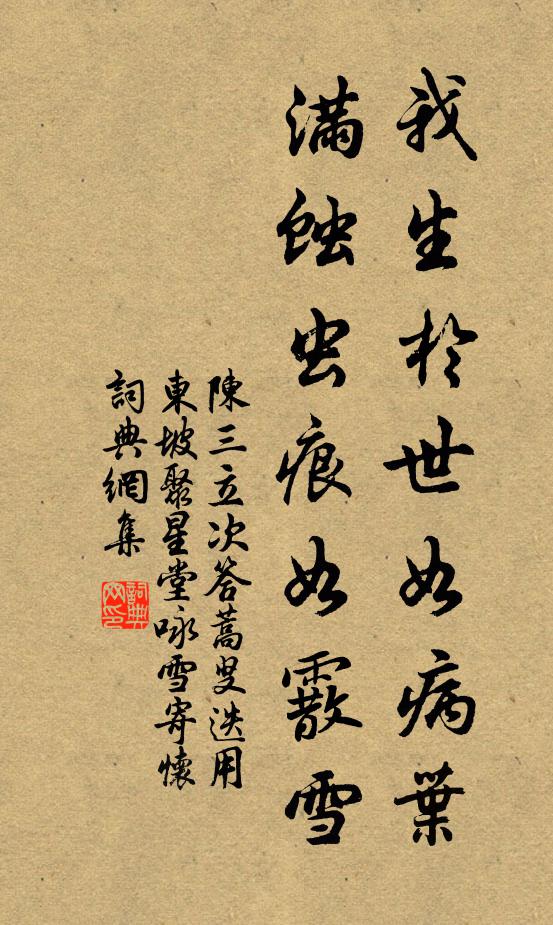 我生於世如病葉
滿蝕虫痕如霰雪
陳三立次答蒿叟迭用
東坡聚星堂咏雪寄懷
詞典網集
詞典
网印